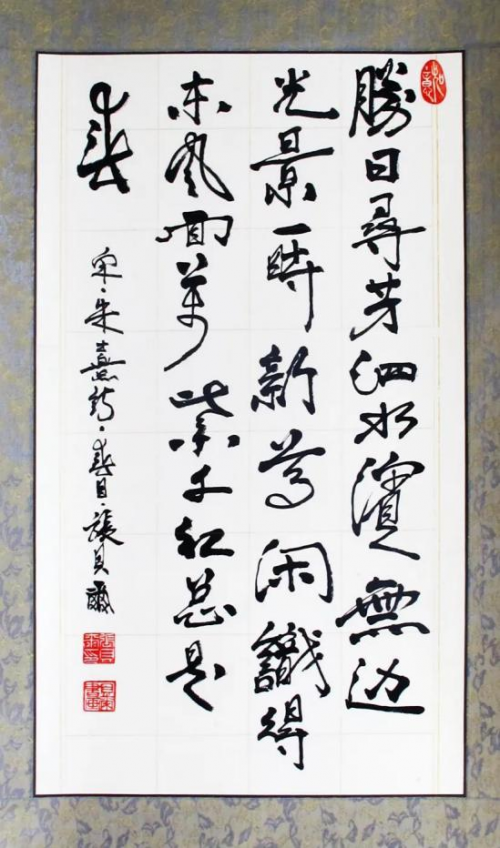 勝日尋芳泗水濱無边
光景一時新等闲識得
东風面萬紫千紅总是
春
宋·朱熹詩·春日·張貝爾
如意